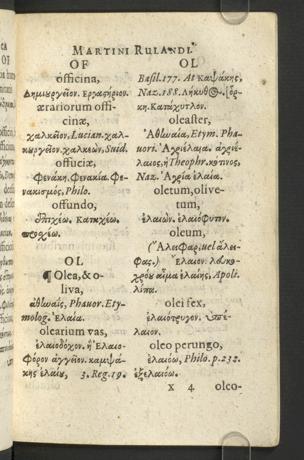 MARTINI RULANDI
OF
officina,
Δημιουργεῖον. Ἐργαςήριον.
ærariorum offi-
cinæ,
χαλκεῖον, Lucian. χαλ-
κυργεῖον. χαλκεὼν, Suid.
offuciæ,
Φενάκη. Φενακία. Φε-
νακισμὸς, Philo.
offundo,
ἐπιχέω. Καταχέω.
περιχέω.
OL
¶ Olea, & o-
liva,
Phavor. Ety-
molog. Ἐλαία.
olearium vas,
ἐλαιοδόχον. ἢ Ἐλαιο-
Φόρον ἀγγεῖον. καμψά-
κης ἐλαίου, 3. Reg. 19.
OL
Basil. 177. At Καψάκης,
Naz. 188. Λήκυθος.
κη. Κατάχυτλον.
oleaster,
Etym. Pha-
vori. Ἀγριέλαια. ἀγριέ-
λαιος, ἢ Theophr. κότινος,
Naz. Ἀγρία ἐλαία.
oletum, olive-
tum,
ἐλαιών. ἐλαιόφυτον.
oleum,
(Ἄλειφαρ, vel ἄλει-
φας.) Ἔλαιον.
χρου αἷμα ἐλαίης, Apoli.
λίπα.
olei fex,
ἐλαιότρυγον. ὑπέ-
λαιον.
oleo perungo,
ἐλαιόω, Philo. p. 232.
ἐξελαιόω.
x 4 oleo-